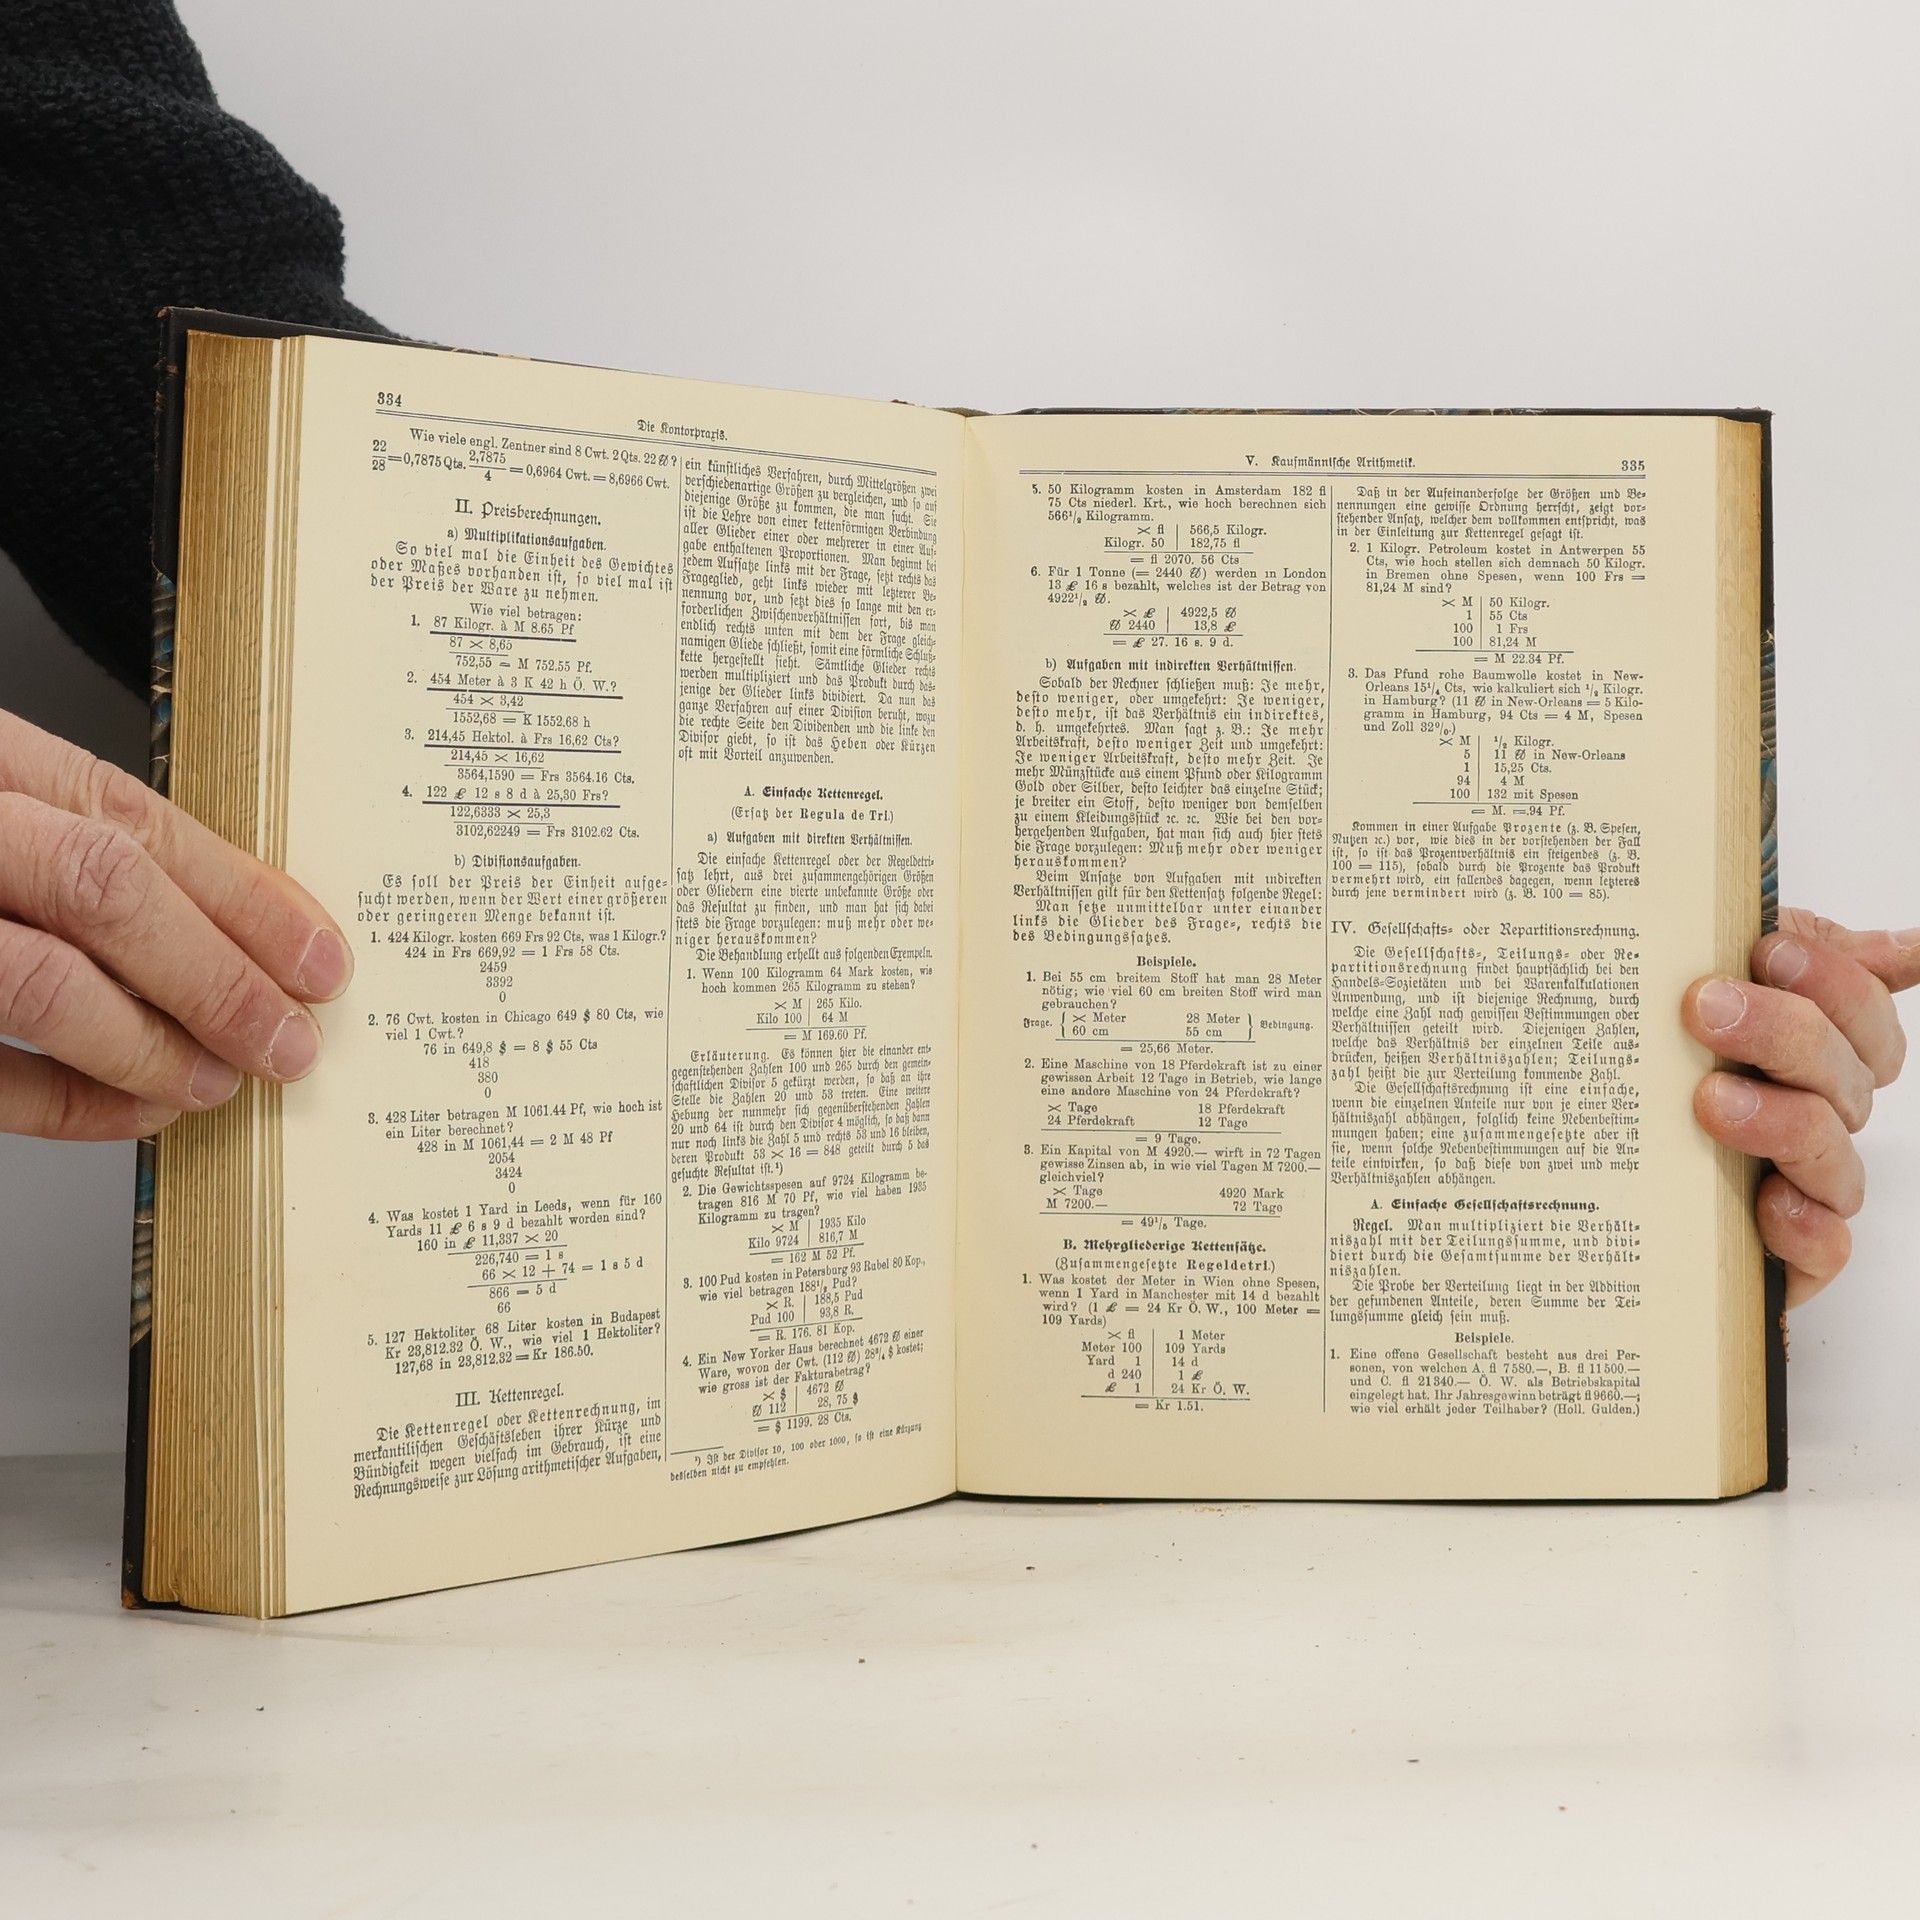 334
Die Kontorpraxis.
Wie viele engl. Zentner sind 8 Cwt. 2 Qts. 22 ℔?
22/28 = 0,7875 Qts. 2,7875/4 = 0,6964 Cwt. = 8,6966 Cwt.
II. Preisberechnungen.
a) Multiplikationsaufgaben.
So viel mal die Einheit des Gewichtes
oder Maßes vorhanden ist, so viel mal ist
der Preis der Ware zu nehmen.
Wie viel betragen:
1. 87 Kilogr. à M 8.65 Pf
87 × 8,65
752,55 = M 752.55 Pf.
2. 454 Meter à 3 K 42 h Ö. W.?
454 × 3,42
1552,68 = K 1552.68 h
3. 214,45 Hektol. à Frs 16,62 Cts?
214,45 × 16,62
3564,1590 = Frs 3564.16 Cts.
4. 122 £ 12 s 8 d à 25,30 Frs?
122,6333 × 25,3
3102,62249 = Frs 3102.62 Cts.
b) Divisionsaufgaben.
Es soll der Preis der Einheit aufge-
sucht werden, wenn der Wert einer größeren
oder geringeren Menge bekannt ist.
1. 424 Kilogr. kosten 669 Frs 92 Cts, was 1 Kilogr.?
424 in Frs 669,92 = 1 Frs 58 Cts.
2459
3392
0
2. 76 Cwt. kosten in Chicago 649 $ 80 Cts, wie
viel 1 Cwt.?
76 in 649,8 $ = 8 $ 55 Cts
418
380
0
3. 428 Liter betragen M 1061.44 Pf, wie hoch ist
ein Liter berechnet?
428 in M 1061,44 = 2 M 48 Pf
2054
3424
0
4. Was kostet 1 Yard in Leeds, wenn für 160
Yards 11 £ 6 s 9 d bezahlt worden sind?
160 in £ 11,337 × 20
226,740 = 1 s
66 × 12 + 74 = 1 s 5 d
866 = 5 d
66
5. 127 Hektoliter 68 Liter kosten in Budapest
Kr 23,812.32 Ö. W., wie viel 1 Hektoliter?
127,68 in 23,812.32 = Kr 186.50.
III. Kettenregel.
Die Kettenregel oder Kettenrechnung, im
merkantilischen Geschäftsleben ihrer Kürze und
Bündigkeit wegen vielfach im Gebrauch, ist eine
Rechnungsweise zur Lösung arithmetischer Aufgaben,
ein künstliches Verfahren, durch Mittelgrößen zwei
verschiedenartige Größen zu vergleichen, und so auf
diejenige Größe zu kommen, die man sucht. Sie
ist die Lehre von einer kettenförmigen Verbindung
aller Glieder einer oder mehrerer in einer Auf-
gabe enthaltenen Proportionen. Man beginnt bei
jedem Aufsatze links mit der Frage, setzt rechts das
Frageglied, geht links wieder mit letzterer Be-
nennung vor, und setzt dies so lange mit den er-
forderlichen Zwischenverhältnissen fort, bis man
endlich rechts unten mit dem der Frage gleich-
namigen Gliede schließt, somit eine förmliche Schluß-
kette hergestellt sieht. Sämtliche Glieder rechts
werden multipliziert und das Produkt durch das-
jenige der Glieder links dividiert. Da nun das
ganze Verfahren auf einer Division beruht, wozu
die rechte Seite den Dividenden und die linke den
Divisor giebt, so ist das Heben oder Kürzen
oft mit Vorteil anzuwenden.
A. Einfache Kettenregel.
(Ersatz der Regula de Tri.)
a) Aufgaben mit direkten Verhältnissen.
Die einfache Kettenregel oder der Regeldetri-
satz lehrt, aus drei zusammengehörigen Größen
oder Gliedern eine vierte unbekannte Größe oder
das Resultat zu finden, und man hat sich dabei
stets die Frage vorzulegen: muß mehr oder we-
niger herauskommen?
Die Behandlung erhellt aus folgenden Exempeln.
1. Wenn 100 Kilogramm 64 Mark kosten, wie
hoch kommen 265 Kilogramm zu stehen?
× M | 265 Kilo.
Kilo 100 | 64 M
= M 169.60 Pf.
Erläuterung. Es können hier die einander ent-
gegenstehenden Zahlen 100 und 265 durch den gemein-
schaftlichen Divisor 5 gekürzt werden, so daß an ihre
Stelle die Zahlen 20 und 53 treten. Eine weitere
Hebung der nunmehr sich gegenüberstehenden Zahlen
20 und 64 ist durch den Divisor 4 möglich, so daß dann
nur noch links die Zahl 5 und rechts 53 und 16 bleiben,
deren Produkt 53 × 16 = 848 geteilt durch 5 das
gesuchte Resultat ist.¹)
2. Die Gewichtsspesen auf 9724 Kilogramm be-
tragen 816 M 70 Pf, wie viel haben 1935
Kilogramm zu tragen?
× M | 1935 Kilo
Kilo 9724 | 816,7 M
= 162 M 52 Pf.
3. 100 Pud kosten in Petersburg 93 Rubel 80 Kop.,
wie viel betragen 188½ Pud?
× R. | 188,5 Pud
Pud 100 | 93,8 R.
= R. 176. 81 Kop.
4. Ein New Yorker Haus berechnet 4672 ℔ einer
Ware, wovon der Cwt. (112 ℔) 28¾ $ kostet;
wie gross ist der Fakturabetrag?
× $ | 4672 ℔
℔ 112 | 28, 75 $
= $ 1199. 28 Cts.
¹) Ist der Divisor 10, 100 oder 1000, so ist eine Kürzung
desselben nicht zu empfehlen.
V. Kaufmännische Arithmetik.
335
5. 50 Kilogramm kosten in Amsterdam 182 fl
75 Cts niederl. Krt., wie hoch berechnen sich
566½ Kilogramm.
× fl | 566,5 Kilogr.
Kilogr. 50 | 182,75 fl
= fl 2070. 56 Cts
6. Für 1 Tonne (= 2440 ℔) werden in London
13 £ 16 s bezahlt, welches ist der Betrag von
4922½ ℔.
× £ | 4922,5 ℔
℔ 2440 | 13,8 £
= £ 27. 16 s. 9 d.
b) Aufgaben mit indirekten Verhältnissen.
Sobald der Rechner schließen muß: Je mehr,
desto weniger, oder umgekehrt: Je weniger,
desto mehr, ist das Verhältnis ein indirektes,
d. h. umgekehrtes. Man sagt z. B.: Je mehr
Arbeitskraft, desto weniger Zeit und umgekehrt:
Je weniger Arbeitskraft, desto mehr Zeit. Je
mehr Münzstücke aus einem Pfund oder Kilogramm
Gold oder Silber, desto leichter das einzelne Stück;
je breiter ein Stoff, desto weniger von demselben
zu einem Kleidungsstück ꝛc. ꝛc. Wie bei den vor-
hergehenden Aufgaben, hat man sich auch hier stets
die Frage vorzulegen: Muß mehr oder weniger
herauskommen?
Beim Ansatze von Aufgaben mit indirekten
Verhältnissen gilt für den Kettensatz folgende Regel:
Man setze unmittelbar unter einander
links die Glieder des Frage-, rechts die
des Bedingungssatzes.
Beispiele.
1. Bei 55 cm breitem Stoff hat man 28 Meter
nötig; wie viel 60 cm breiten Stoff wird man
gebrauchen?
Frage. { × Meter 28 Meter } Bedingung.
60 cm 55 cm
= 25,66 Meter.
2. Eine Maschine von 18 Pferdekraft ist zu einer
gewissen Arbeit 12 Tage in Betrieb, wie lange
eine andere Maschine von 24 Pferdekraft?
× Tage 18 Pferdekraft
24 Pferdekraft 12 Tage
= 9 Tage.
3. Ein Kapital von M 4920.— wirft in 72 Tagen
gewisse Zinsen ab, in wie viel Tagen M 7200.—
gleichviel?
× Tage 4920 Mark
M 7200.— 72 Tage
= 49⅕ Tage.
B. Mehrgliederige Kettensätze.
(Zusammengesetzte Regeldetri.)
1. Was kostet der Meter in Wien ohne Spesen,
wenn 1 Yard in Manchester mit 14 d bezahlt
wird? (1 £ = 24 Kr Ö. W., 100 Meter =
109 Yards)
× fl | 1 Meter
Meter 100 | 109 Yards
Yard 1 | 14 d
d 240 | 1 £
£ 1 | 24 Kr Ö. W.
= Kr 1.51.
Daß in der Aufeinanderfolge der Größen und Be-
nennungen eine gewisse Ordnung herrscht, zeigt vor-
stehender Ansatz, welcher dem vollkommen entspricht, was
in der Einleitung zur Kettenregel gesagt ist.
2. 1 Kilogr. Petroleum kostet in Antwerpen 55
Cts, wie hoch stellen sich demnach 50 Kilogr.
in Bremen ohne Spesen, wenn 100 Frs =
81,24 M sind?
× M | 50 Kilogr.
1 | 55 Cts
100 | 1 Frs
100 | 81,24 M
= M 22.34 Pf.
3. Das Pfund rohe Baumwolle kostet in New-
Orleans 15¼ Cts, wie kalkuliert sich ½ Kilogr.
in Hamburg? (11 ℔ in New-Orleans = 5 Kilo-
gramm in Hamburg, 94 Cts = 4 M, Spesen
und Zoll 32%.)
× M | ½ Kilogr.
5 | 11 ℔ in New-Orleans
1 | 15,25 Cts.
94 | 4 M
100 | 132 mit Spesen
= M. —.94 Pf.
Kommen in einer Aufgabe Prozente (z. B. Spesen,
Nutzen ꝛc.) vor, wie dies in der vorstehenden der Fall
ist, so ist das Prozentverhältnis ein steigendes (z. B.
100 = 115), sobald durch die Prozente das Produkt
vermehrt wird, ein fallendes dagegen, wenn letzteres
durch jene vermindert wird (z. B. 100 = 85).
IV. Gesellschafts- oder Repartitionsrechnung.
Die Gesellschafts-, Teilungs- oder Re-
partitionsrechnung findet hauptsächlich bei den
Handels-Sozietäten und bei Warenkalkulationen
Anwendung, und ist diejenige Rechnung, durch
welche eine Zahl nach gewissen Bestimmungen oder
Verhältnissen geteilt wird. Diejenigen Zahlen,
welche das Verhältnis der einzelnen Teile aus-
drücken, heißen Verhältniszahlen; Teilungs-
zahl heißt die zur Verteilung kommende Zahl.
Die Gesellschaftsrechnung ist eine einfache,
wenn die einzelnen Anteile nur von je einer Ver-
hältniszahl abhängen, folglich keine Nebenbestim-
mungen haben; eine zusammengesetzte aber ist
sie, wenn solche Nebenbestimmungen auf die An-
teile einwirken, so daß diese von zwei und mehr
Verhältniszahlen abhängen.
A. Einfache Gesellschaftsrechnung.
Regel. Man multipliziert die Verhält-
niszahl mit der Teilungssumme, und divi-
diert durch die Gesamtsumme der Verhält-
niszahlen.
Die Probe der Verteilung liegt in der Addition
der gefundenen Anteile, deren Summe der Tei-
lungssumme gleich sein muß.
Beispiele.
1. Eine offene Gesellschaft besteht aus drei Per-
sonen, von welchen A. fl 7580.—, B. fl 11500.—
und C. fl 21340.— Ö. W. als Betriebskapital
eingelegt hat. Ihr Jahresgewinn beträgt fl 9660.—;
wie viel erhält jeder Teilhaber? (Holl. Gulden.)